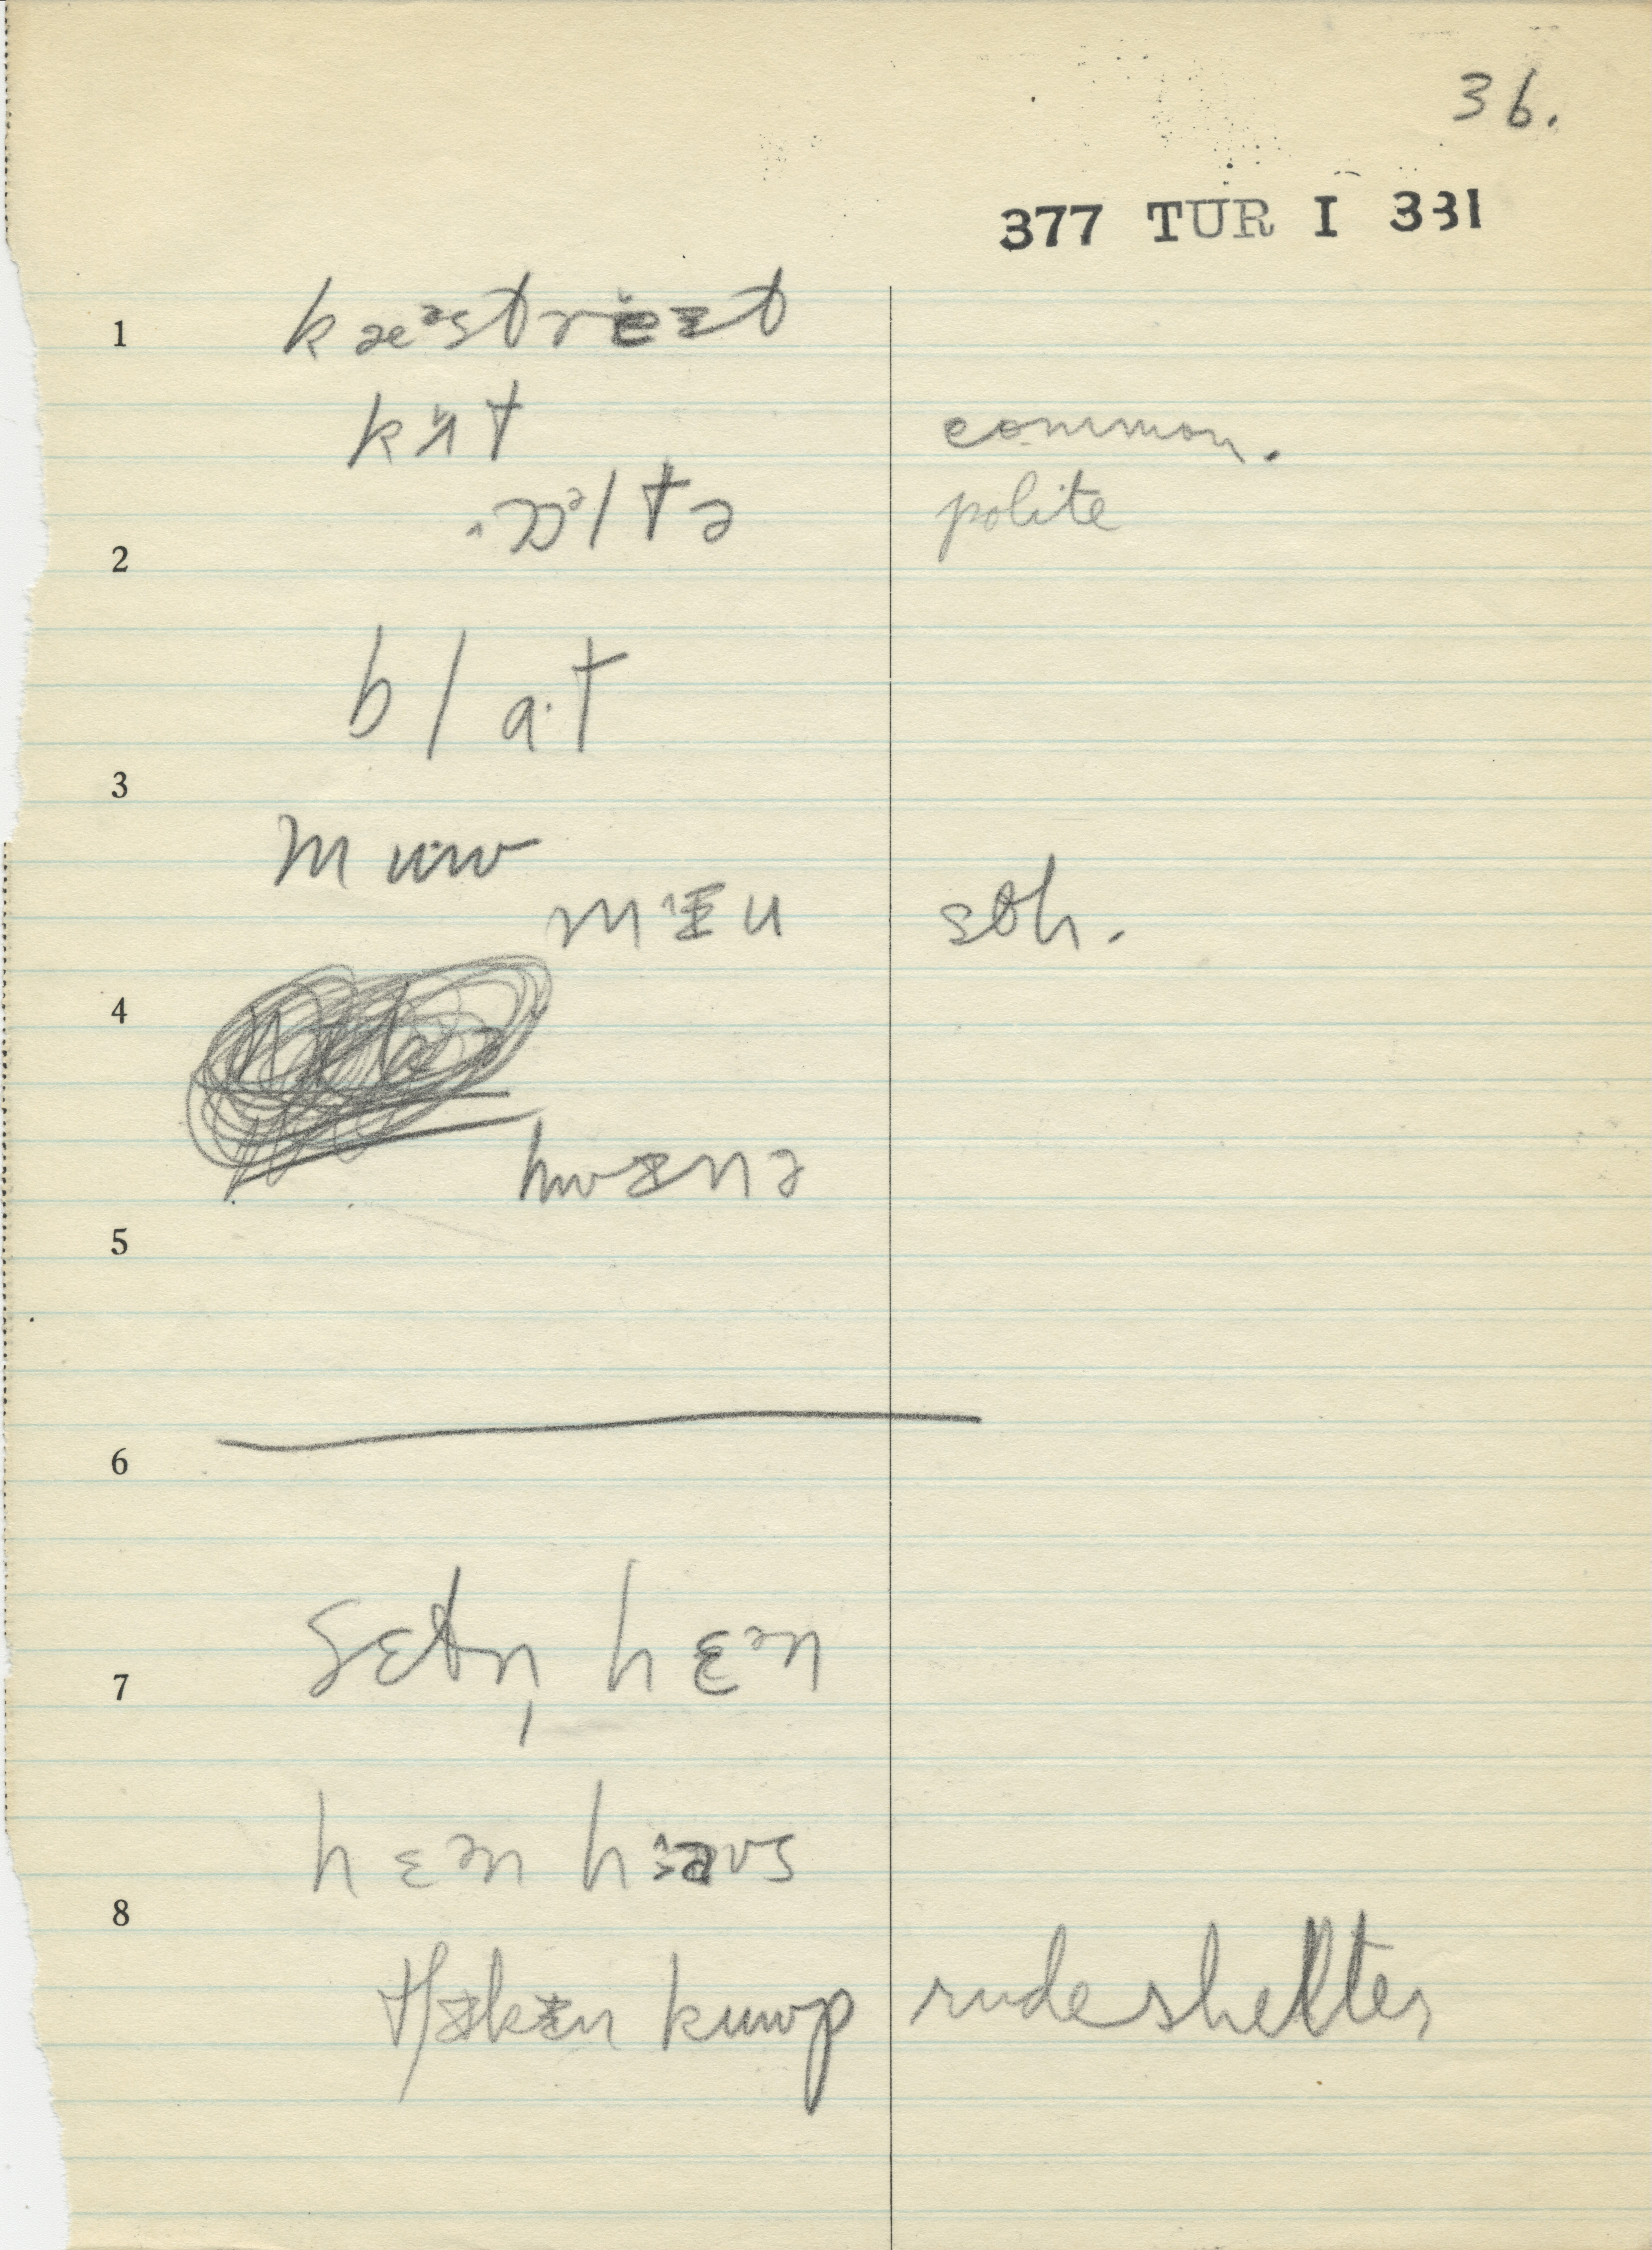 36.
377 TUR I 331
1
kæᵊstrɛɪt
kʌt common.
ɒᵊltə polite
2
b l a·t
3
m u·w
mɪu sθh.
4
hwɪnɪ
5
6
sɛtn̩ hɛən
7
hɛən haʊs
8
kɪn kuwp rude shelter